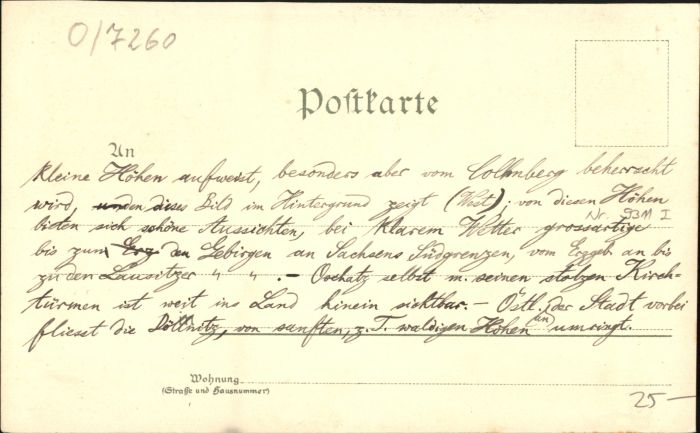 O/7260
Postkarte
An
kleine Höhen aufweist, besonders aber vom Collmberg beherrscht
wird, den dieses Bild im Hintergrund zeigt (West); von diesen Höhen
bieten sich schöne Aussichten, bei klarem Wetter grossartige
Nr. 93M I
bis zum Erz den Gebirgen an Sachsens Südgrenzen, vom Erzgeb. an bis
zu den Lausitzer " " . – Oschatz selbst m. seinen stolzen Kirch-
türmen ist weit ins Land hinein sichtbar. – Östl. der Stadt vorbei
fliesst die Döllnitz, von sanften, z. T. waldigen Höhen umringt.
Wohnung
(Straße und Hausnummer)
25–